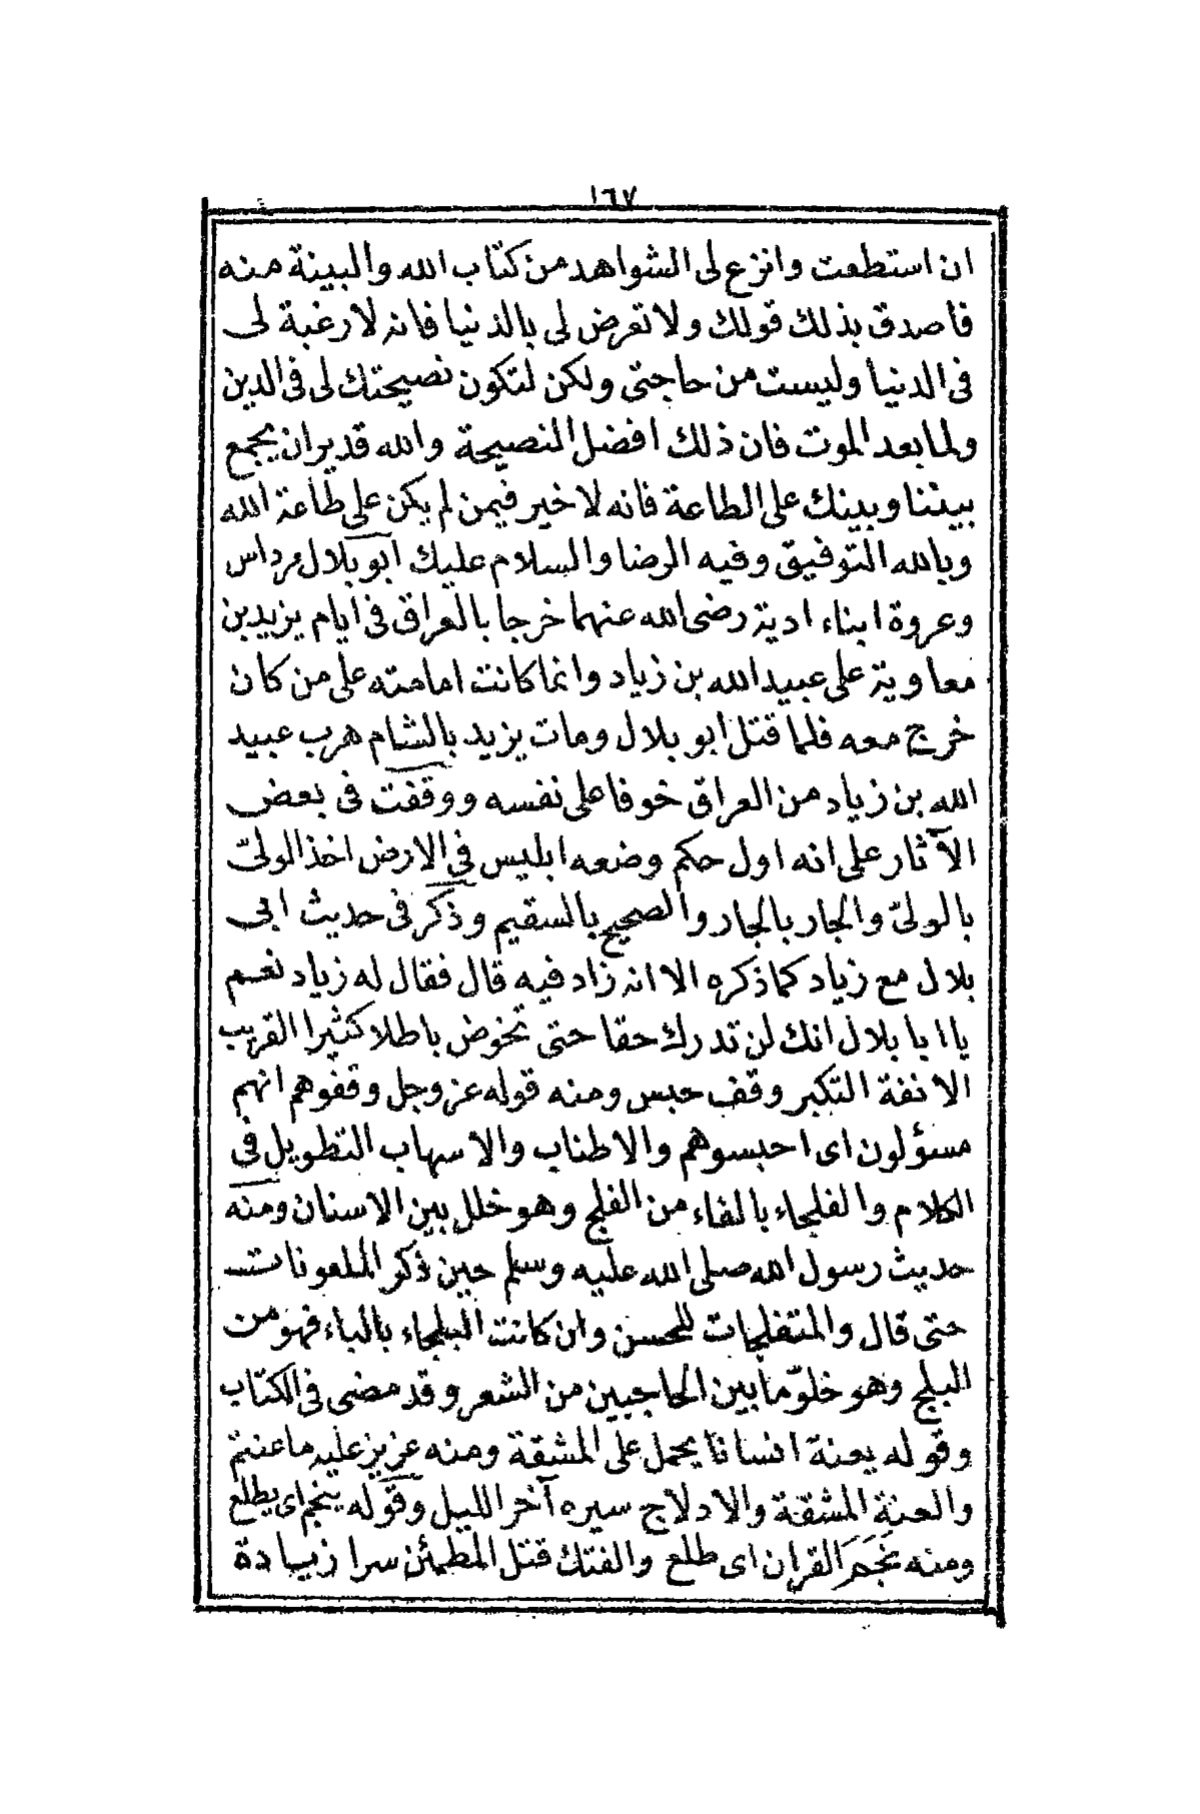 ١٦٧
ان استطعت وانزع لى الشواهد من كتاب الله والبينة منه
فاصدق بذلك قولك ولا تعرض لى بالدنيا فانه لا رغبة لى
فى الدنيا وليست من حاجتى ولكن لتكون نصيحتك لى فى الدين
ولما بعد الموت فان ذلك افضل النصيحة والله قدير ان يجمع
بيننا وبينك على الطاعة فانه لا خير فيمن لم يكن على طاعة الله
وبالله التوفيق وفيه الرضا والسلام عليك ابو بلال مرداس
وعروة ابناء ادية رضى الله عنهما خرجا بالعراق فى ايام يزيد بن
معاوية على عبيد الله بن زياد وانما كانت امامته على من كان
خرج معه فلما قتل ابو بلال ومات يزيد بالشام هرب عبيد
الله بن زياد من العراق خوفا على نفسه ووقفت فى بعض
الآثار على انه اول حكم وضعه ابليس فى الارض اخذ الولىّ
بالولىّ والجار بالجار والصحيح بالسقيم وذكر فى حديث ابى
بلال مع زياد كما ذكره الا انه زاد فيه قال فقال له زياد نعم
يا ابا بلال انك لن تدرك حقا حتى تخوض باطلا كثيرا القريب
الانفة التكبر وقف حبس ومنه قوله عز وجل وقفوهم انهم
مسؤلون اى احبسوهم والاطناب والاسهاب التطويل فى
الكلام والفلجاء بالفاء من الفلج وهو خلل بين الاسنان ومنه
حديث رسول الله صلى الله عليه وسلم حين ذكر الملعونات
حتى قال والمتفلجات للحسن وان كانت البلجاء بالباء فهو من
البلج وهو خلوّ ما بين الحاجبين من الشعر وقد مضى فى الكتاب
وقوله يعنة انسانا يحمل على المشقة ومنه عزيز عليه ما عنتم
والعنة المشقة والادلاج سيره آخر الليل وقوله ينجم اى يطلع
ومنه نَجَمَ القران اى طلع والفتك قتل المطمئن سرا زيادة